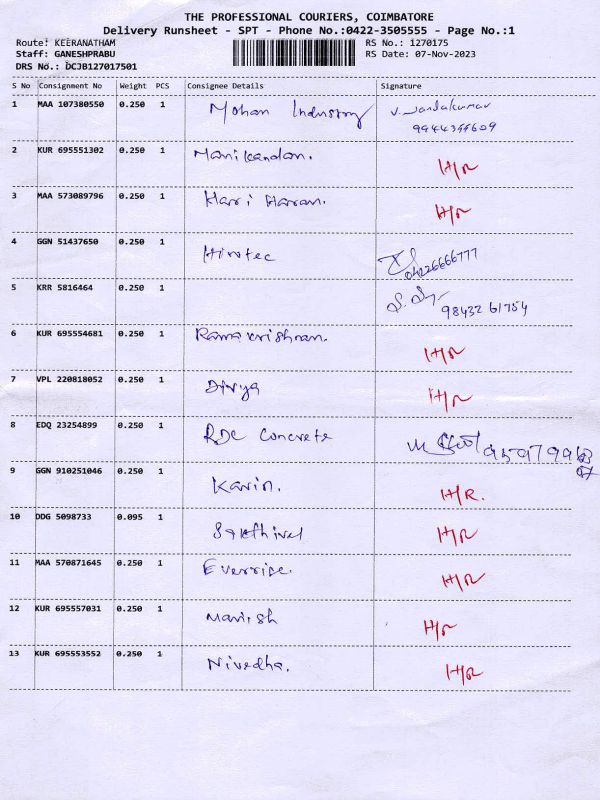 THE PROFESSIONAL COURIERS, COIMBATORE
Delivery Runsheet - SPT - Phone No.:0422-3505555 - Page No.:1
Route: KEERANATHAM RS No.: 1270175
Staff: GANESHPRABU RS Date: 07-Nov-2023
DRS No.: DCJB127017501
S No Consignment No Weight PCS Consignee Details Signature
1 MAA 107380550 0.250 1 Mohan Industry V. Nandakumar
9944344609
2 KUR 695551302 0.250 1 Manikandan. H/R
3 MAA 573089796 0.250 1 Harri Haran. H/R
4 GGN 51437650 0.250 1 Hirotec 04226666777
5 KRR 5816464 0.250 1 98432 61754
6 KUR 695554681 0.250 1 Ramakrishnan. H/R
7 VPL 220818052 0.250 1 Divya H/R
8 EDQ 23254899 0.250 1 RDC Concrete
9 GGN 910251046 0.250 1 Kavin. H/R.
10 DDG 5098733 0.095 1 Sakthivel H/R
11 MAA 570871645 0.250 1 Everrise. H/R
12 KUR 695557031 0.250 1 Manish H/R
13 KUR 695553552 0.250 1 Nivedha. H/R